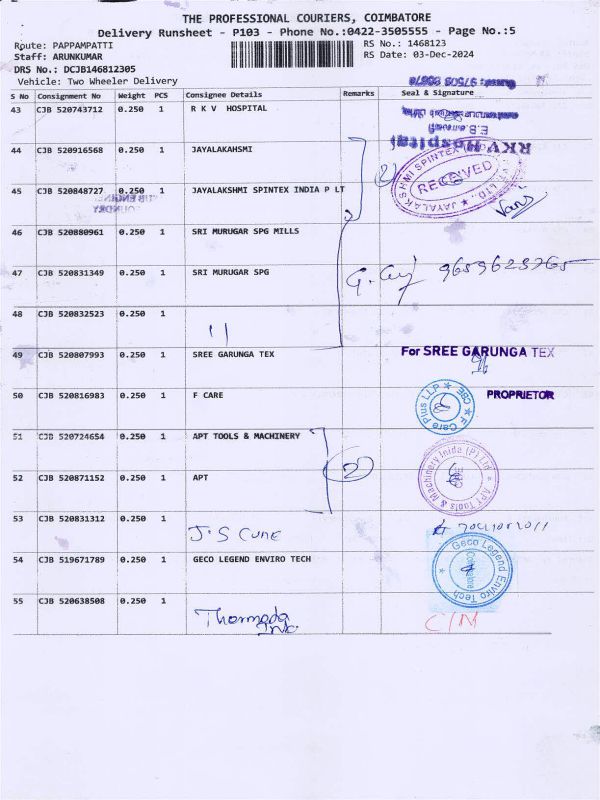 THE PROFESSIONAL COURIERS, COIMBATORE
Delivery Runsheet - P103 - Phone No.:0422-3505555 - Page No.:5
Route: PAPPAMPATTI RS No.: 1468123
Staff: ARUNKUMAR RS Date: 03-Dec-2024
DRS No.: DCJB146812305
Vehicle: Two Wheeler Delivery
S No Consignment No Weight PCS Consignee Details Remarks Seal & Signature
43 CJB 520743712 0.250 1 R K V HOSPITAL
RKV Hospital
44 CJB 520916568 0.250 1 JAYALAKAHSMI
(2) RECEIVED
45 CJB 520848727 0.250 1 JAYALAKSHMI SPINTEX INDIA P LT
46 CJB 520880961 0.250 1 SRI MURUGAR SPG MILLS
47 CJB 520831349 0.250 1 SRI MURUGAR SPG
48 CJB 520832523 0.250 1 11
49 CJB 520807993 0.250 1 SREE GARUNGA TEX For SREE GARUNGA TEX
50 CJB 520816983 0.250 1 F CARE F Care Plus LLP ★ CBE ★ PROPRIETOR
51 CJB 520724654 0.250 1 APT TOOLS & MACHINERY
(2) APT Tools & Machinery India (P) Ltd
52 CJB 520871152 0.250 1 APT
53 CJB 520831312 0.250 1
54 CJB 519671789 0.250 1 GECO LEGEND ENVIRO TECH Geco Legend Enviro Tech Coimbatore
55 CJB 520638508 0.250 1